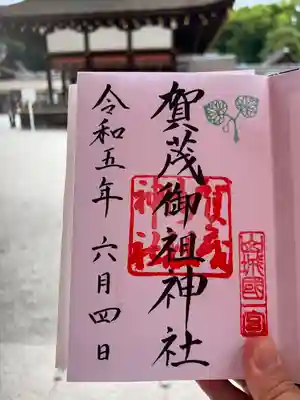 山城國一宮
賀茂御祖神社
賀茂神社
令和五年六月四日